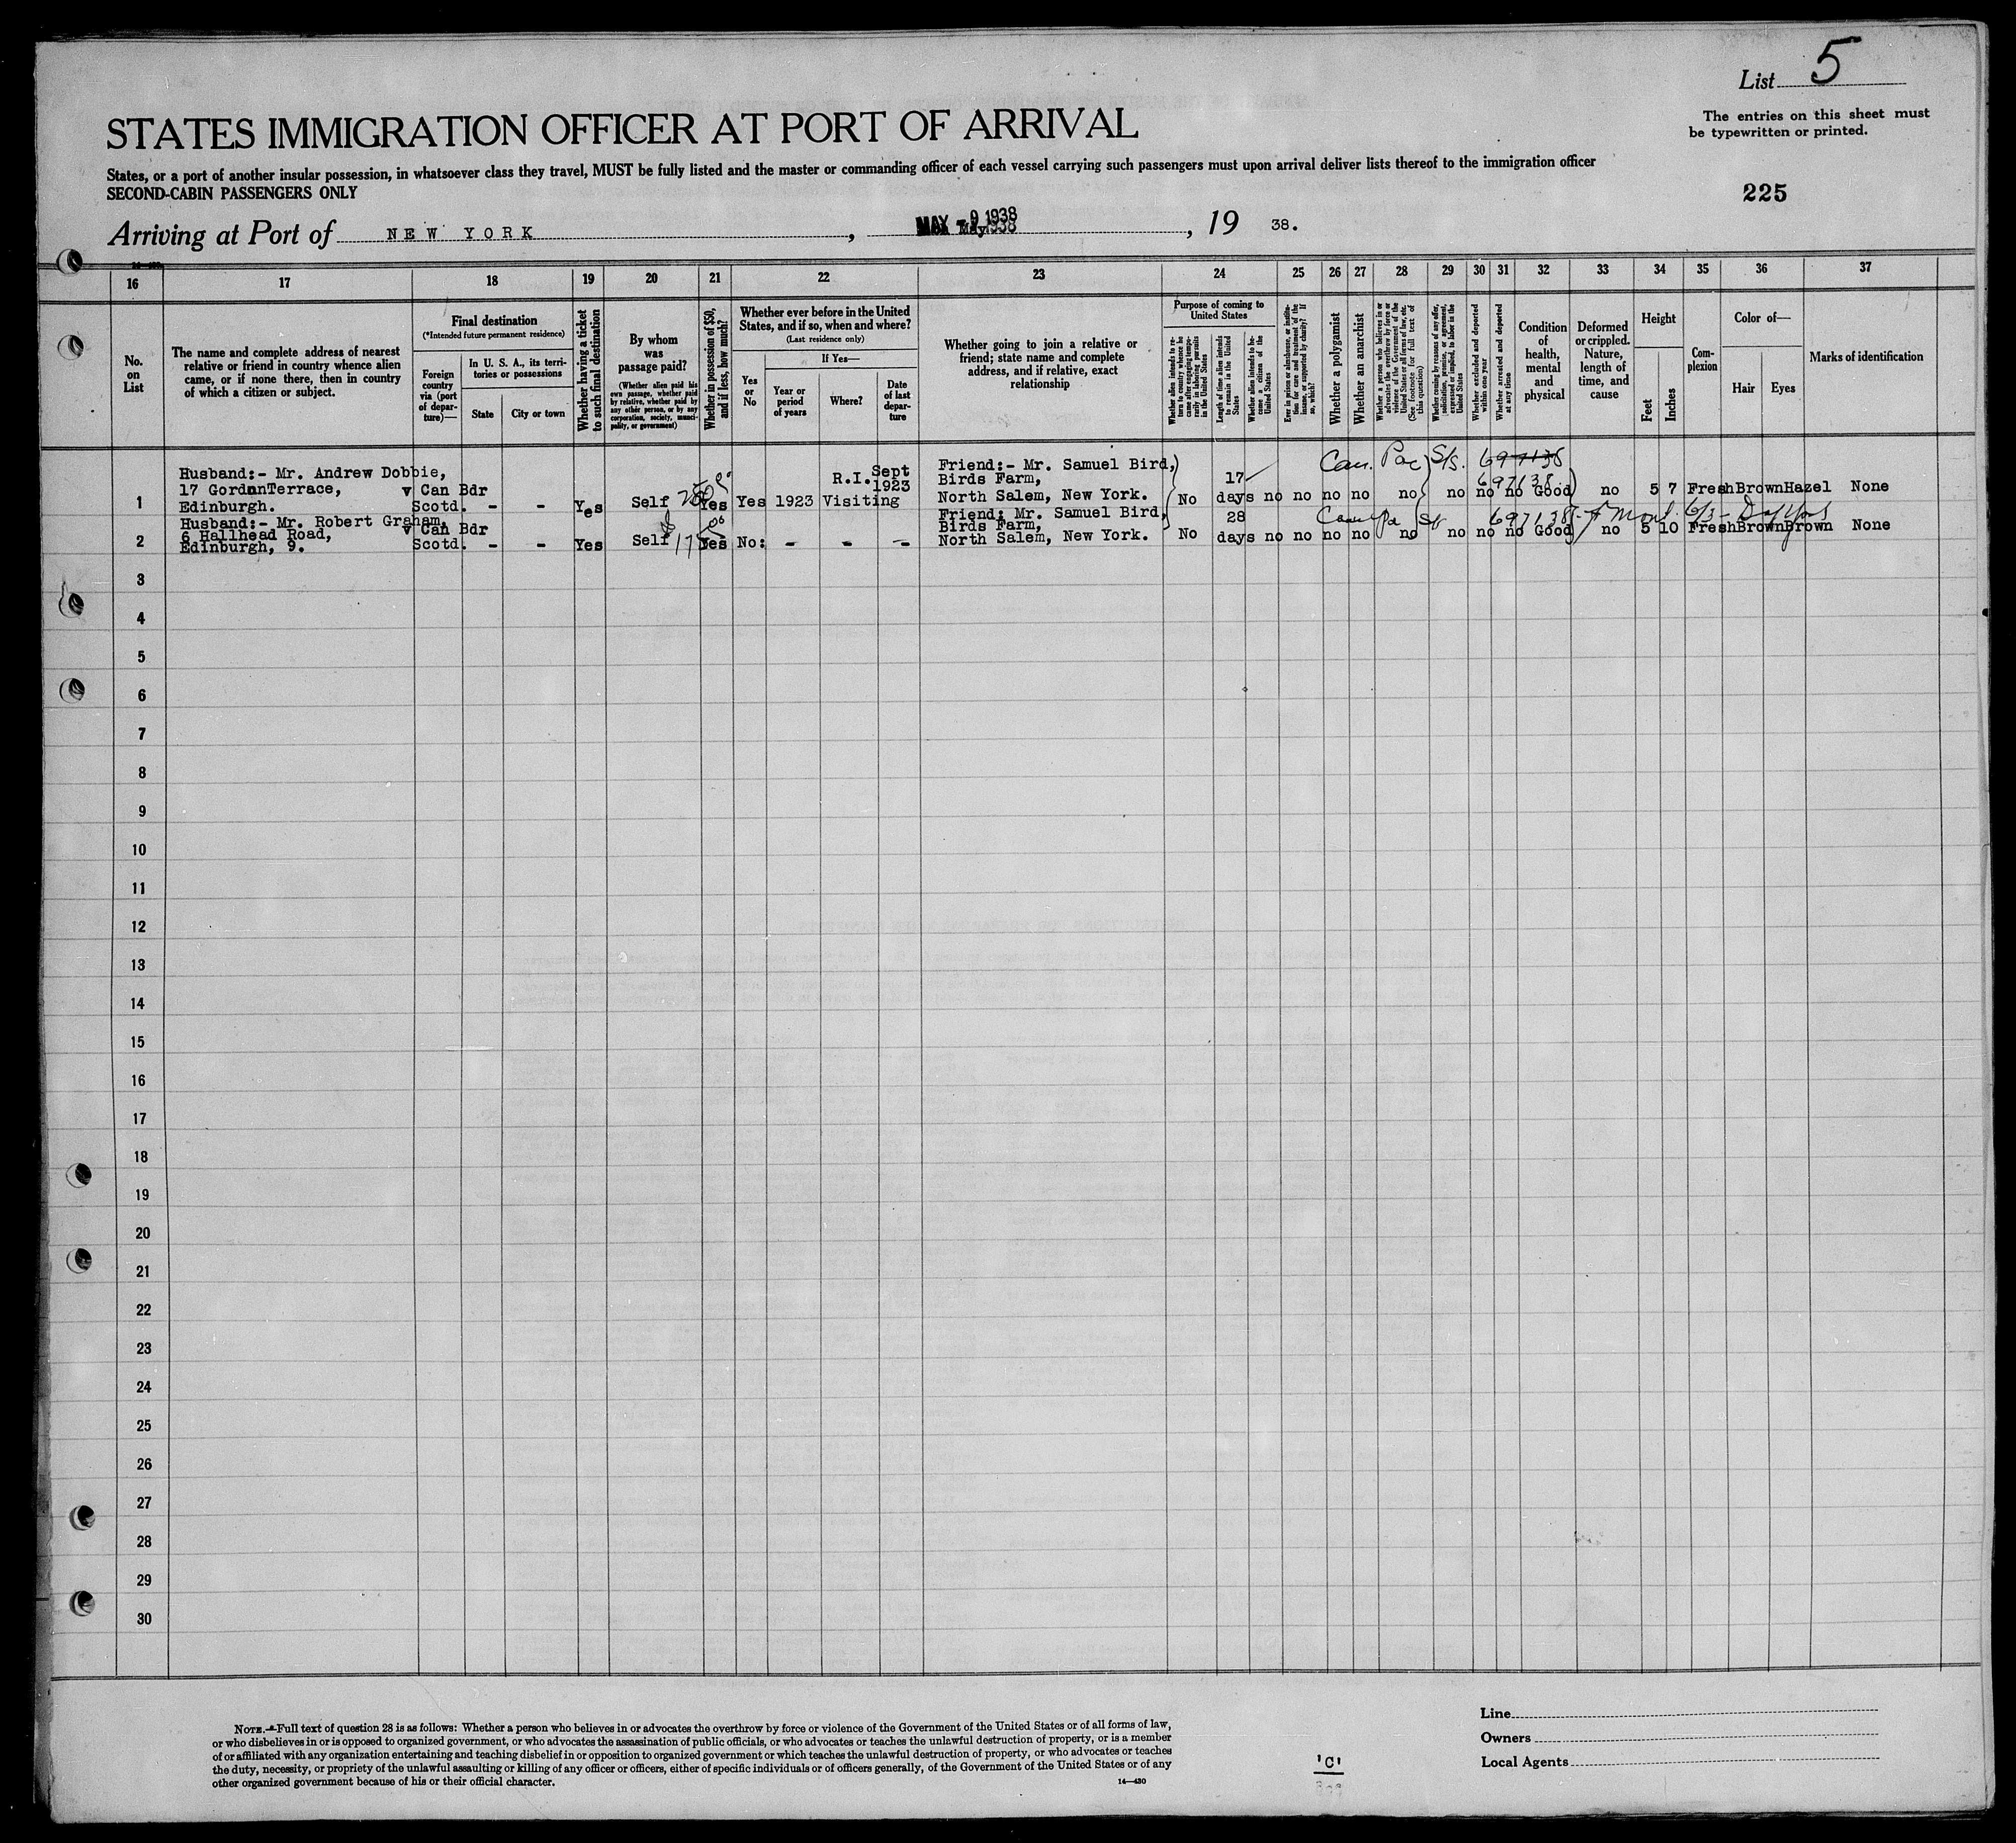 List 5
The entries on this sheet must
be typewritten or printed.
STATES IMMIGRATION OFFICER AT PORT OF ARRIVAL
States, or a port of another insular possession, in whatsoever class they travel, MUST be fully listed and the master or commanding officer of each vessel carrying such passengers must upon arrival deliver lists thereof to the immigration officer
SECOND-CABIN PASSENGERS ONLY
225
Arriving at Port of NEW YORK, MAY 9 1938, 19 38.
16 17 18 19 20 21 22 23 24 25 26 27 28 29 30 31 32 33 34 35 36 37
No.
on
List
The name and complete address of nearest
relative or friend in country whence alien
came, or if none there, then in country
of which a citizen or subject.
Final destination
(*Intended future permanent residence)
Foreign
country
via (port
of depar-
ture)—
In U. S. A., its terri-
tories or possessions
State
City or town
Whether having a ticket
to such final destination
By whom
was
passage paid?
(Whether alien paid his
own passage, whether paid
by relative, whether paid by
any other person, or by any
corporation, society, munici-
pality, or government)
Whether in possession of $50,
and if less, how much?
Whether ever before in the United
States, and if so, when and where?
(Last residence only)
Yes
or
No
If Yes—
Year or
period
of years
Where?
Date
of last
depar-
ture
Whether going to join a relative or
friend; state name and complete
address, and if relative, exact
relationship
Purpose of coming to
United States
Whether alien intends to re-
turn to country whence he
came after engaging tempo-
rarily in laboring pursuits
in the United States
Length of time alien intends
to remain in the United
States
Whether alien intends to be-
come a citizen of the
United States
Ever in prison or almshouse, or institu-
tion for care and treatment of the
insane, or supported by charity? If
so, which?
Whether a polygamist
Whether an anarchist
Whether a person who believes in or
advocates the overthrow by force or
violence of the Government of the
United States or all forms of law, etc.
(See footnote for full text of
this question)
Whether coming by reasons of any offer,
solicitation, promise, or agreement,
expressed or implied, to labor in the
United States
Whether excluded and deported
within one year
Whether arrested and deported
at any time
Condition
of
health,
mental
and
physical
Deformed
or crippled.
Nature,
length of
time, and
cause
Height
Feet
Inches
Com-
plexion
Color of—
Hair
Eyes
Marks of identification
Can. Pac S/s. 697138
Husband:- Mr. Andrew Dobbie,
17 GordonTerrace,
Edinburgh.
v Can Bdr
Scotd. - - Yes Self 250 Yes Yes 1923 R.I. Visiting Sept 1923
Friend:- Mr. Samuel Bird,
Birds Farm,
North Salem, New York.
1 No 17 days no no no no no no no no Good no 5 7 Fresh Brown Hazel None
697138
Husband:- Mr. Robert Graham,
6 Hallhead Road,
Edinburgh, 9.
v Can Bdr
Scotd. - - Yes Self $175 Yes No: - - -
Friend: Mr. Samuel Bird,
Birds Farm,
North Salem, New York.
2 No 28 days no no no no no no no no Good no 5 10 Fresh Brown Brown None
697138
3
4
5
6
7
8
9
10
11
12
13
14
15
16
17
18
19
20
21
22
23
24
25
26
27
28
29
30
NOTE.—Full text of question 28 is as follows: Whether a person who believes in or advocates the overthrow by force or violence of the Government of the United States or of all forms of law,
or who disbelieves in or is opposed to organized government, or who advocates the assassination of public officials, or who advocates or teaches the unlawful destruction of property, or is a member
of or affiliated with any organization entertaining and teaching disbelief in or opposition to organized government or which teaches the unlawful destruction of property, or who advocates or teaches
the duty, necessity, or propriety of the unlawful assaulting or killing of any officer or officers, either of specific individuals or of officers generally, of the Government of the United States or of any
other organized government because of his or their official character.
14—430
'C'
Line
Owners
Local Agents